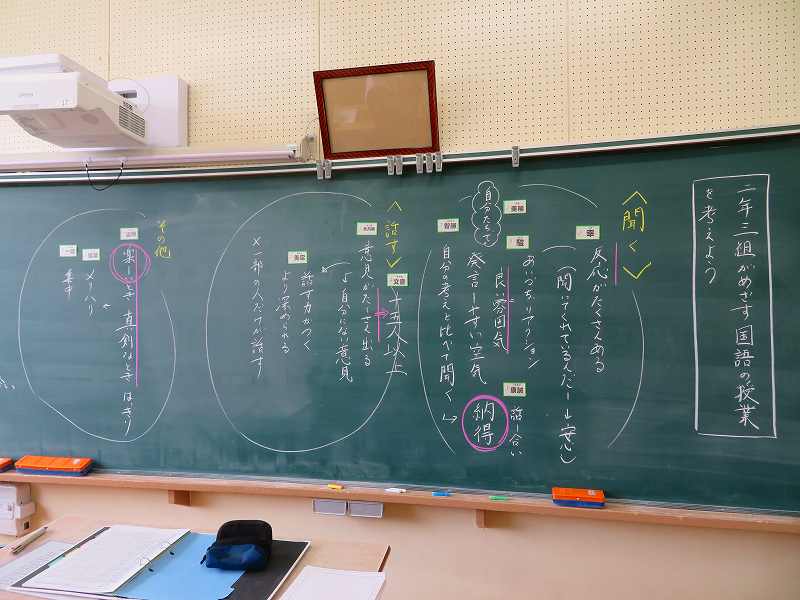 二年三組がめざす国語の授業
を考えよう
〈聞く〉
反応がたくさんある
(聞いてくれているんだー→安心)
あいづち、リアクション
良い雰囲気
発言しやすい空気
自分たちで
話し合い
納得
自分の考えと比べて聞く
〈話す〉
十五人以上
意見がたくさん出る
自分にない意見
話す力がつく
より深められる
×一部の人だけが話す
その他
楽しいとき 真剣なとき はっきり
メリハリ
集中